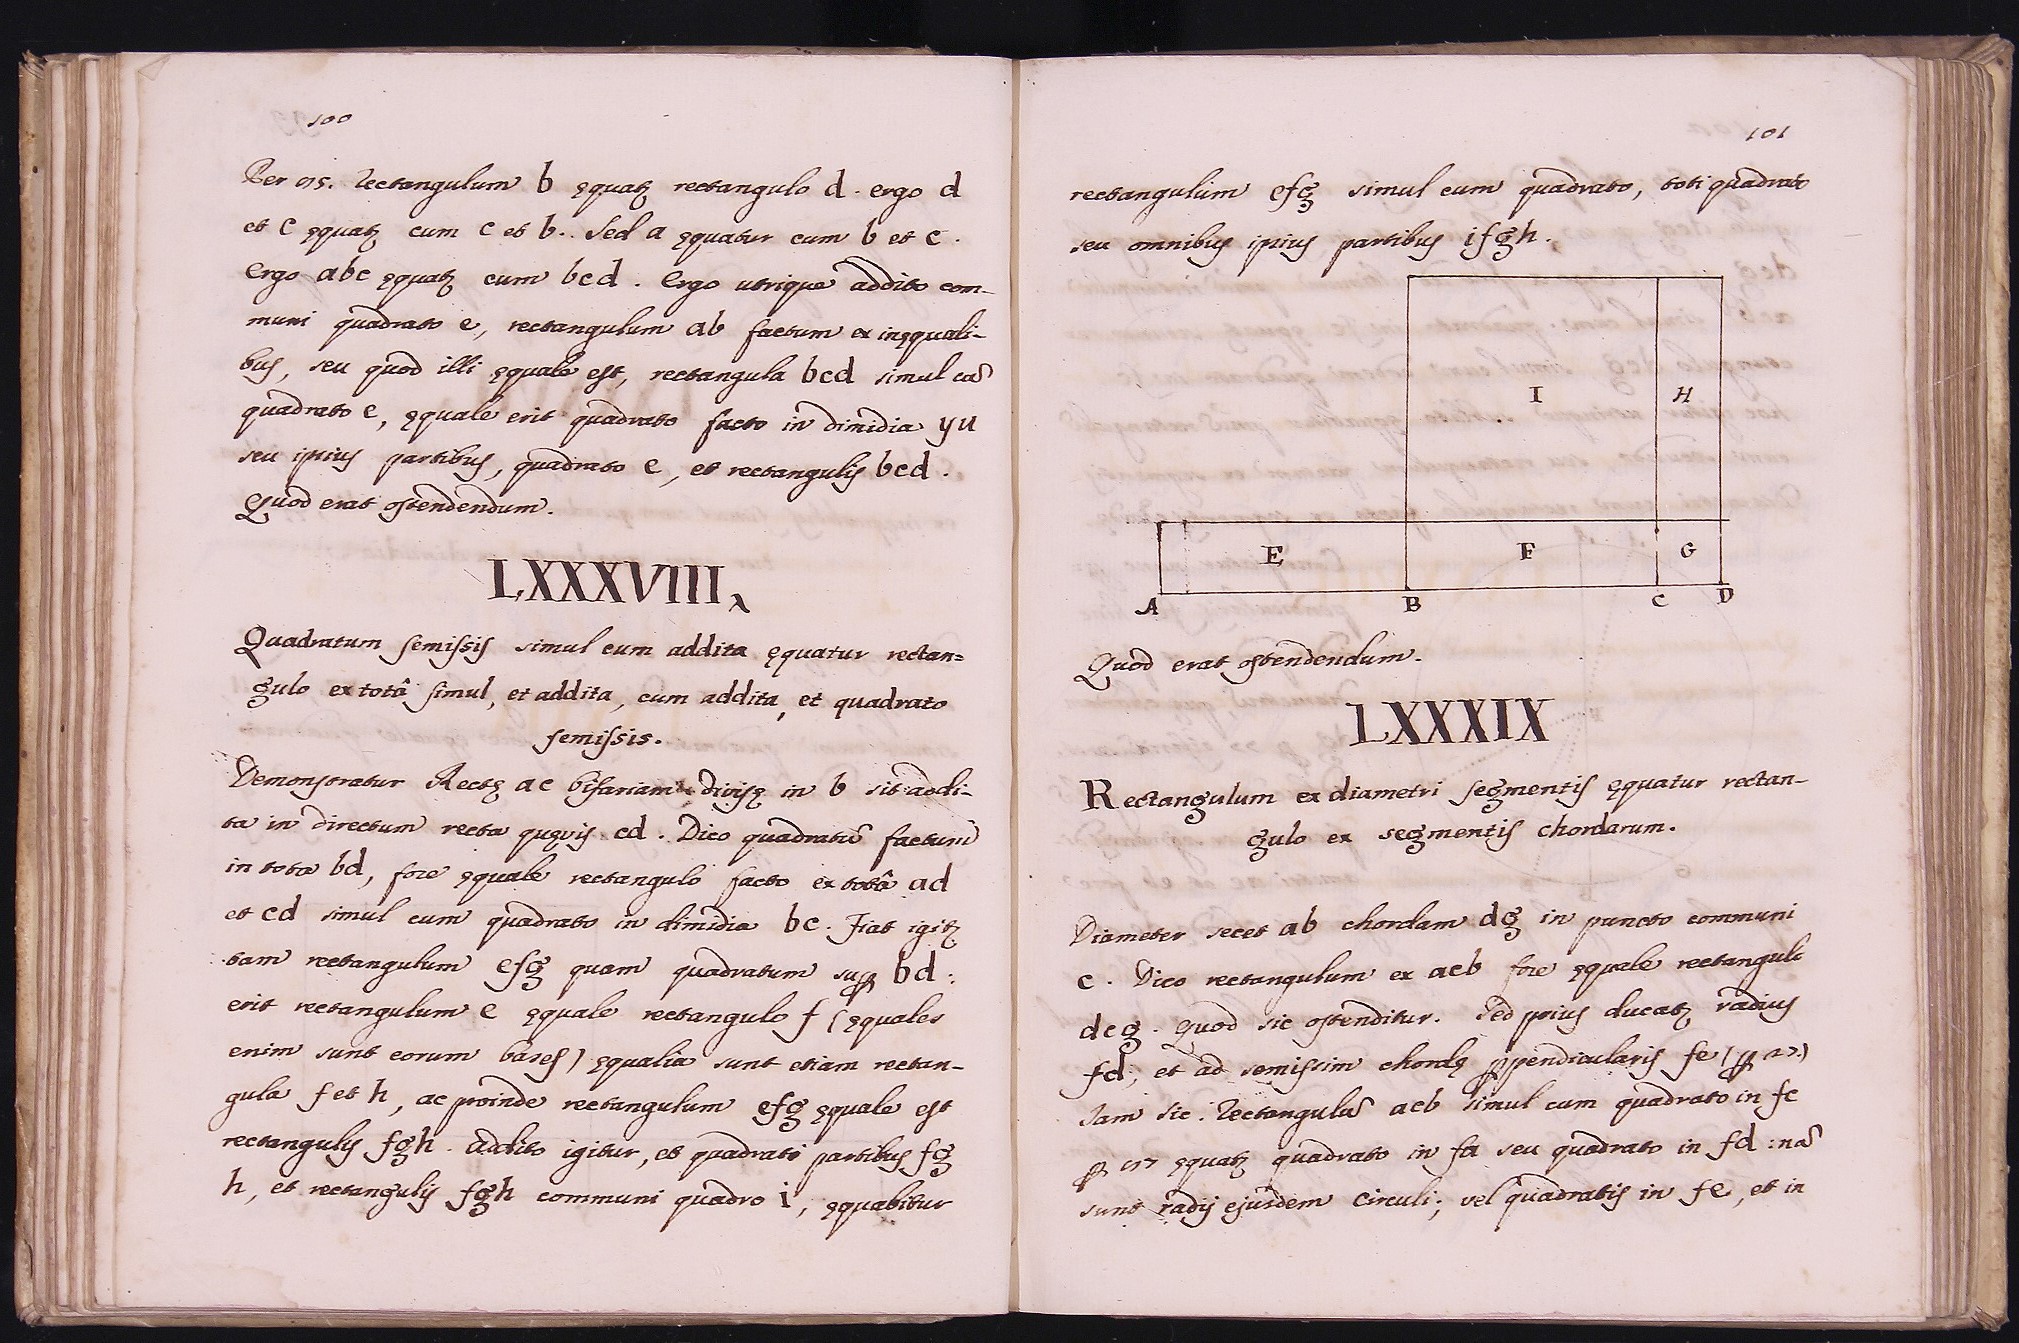 100
Per 85. Rectangulum b ęquatꝫ rectangulo d. ergo d
et c ęquatꝫ cum c et b. Sed a ęquatur cum b et c.
Ergo abc ęquatꝫ cum bcd. Ergo utrique addito com-
muni quadrato e, rectangulum ab factum ex inęquali-
bus, seu quod illi ęquale est, rectangula bcd simul cũ
quadrato e, ęquale erit quadrato facto in dimidia yu
seu ipsius partibus, quadrato e, et rectangulis bcd.
Quod erat ostendendum.
LXXXVIII.
Quadratum semissis simul cum addita ęquatur rectan=
gulo ex totâ simul, et addita, cum addita, et quadrato
semissis.
Demonstratur Rectę ac bifariam divisę in b sit addi-
ta in directum recta quęvis cd. Dico quadratũ factum
in tota bd, fore ęquale rectangulo facto ex totâ ad
et cd simul cum quadrato in dimidia bc. Fiat igitꝫ
tam rectangulum efg quam quadratum suꝑ bd:
erit rectangulum e ęquale rectangulo f (ęquales
enim sunt eorum bases) ęqualia sunt etiam rectan-
gula f et h, ac proinde rectangulum efg ęquale est
rectangulis fgh. Addito igitur, et quadrati partibus fg
h, et rectangulis fgh communi quadro i, ęquabitur
101
rectangulum efg simul cum quadrato, toti quadrato
seu omnibus ipsius partibus ifgh.
I H
E F G
A B C D
Quod erat ostendendum.
LXXXIX
Rectangulum ex diametri segmentis ęquatur rectan-
gulo ex segmentis chordarum.
Diameter secet ab chordam dg in puncto communi
c. Dico rectangulum ex acb fore ęquale rectangulo
dcg. Quod sic ostenditur. Sed prius ducatꝫ radius
fd, et ad semissim chordę ꝑpendicularis fe (ꝑ 27.)
Iam sic. Rectangulũ acb simul cum quadrato in fc
ꝑ 87 ęquatꝫ quadrato in fa seu quadrato in fd: nã
sunt radij ejusdem circuli; vel quadratis in fe, et in